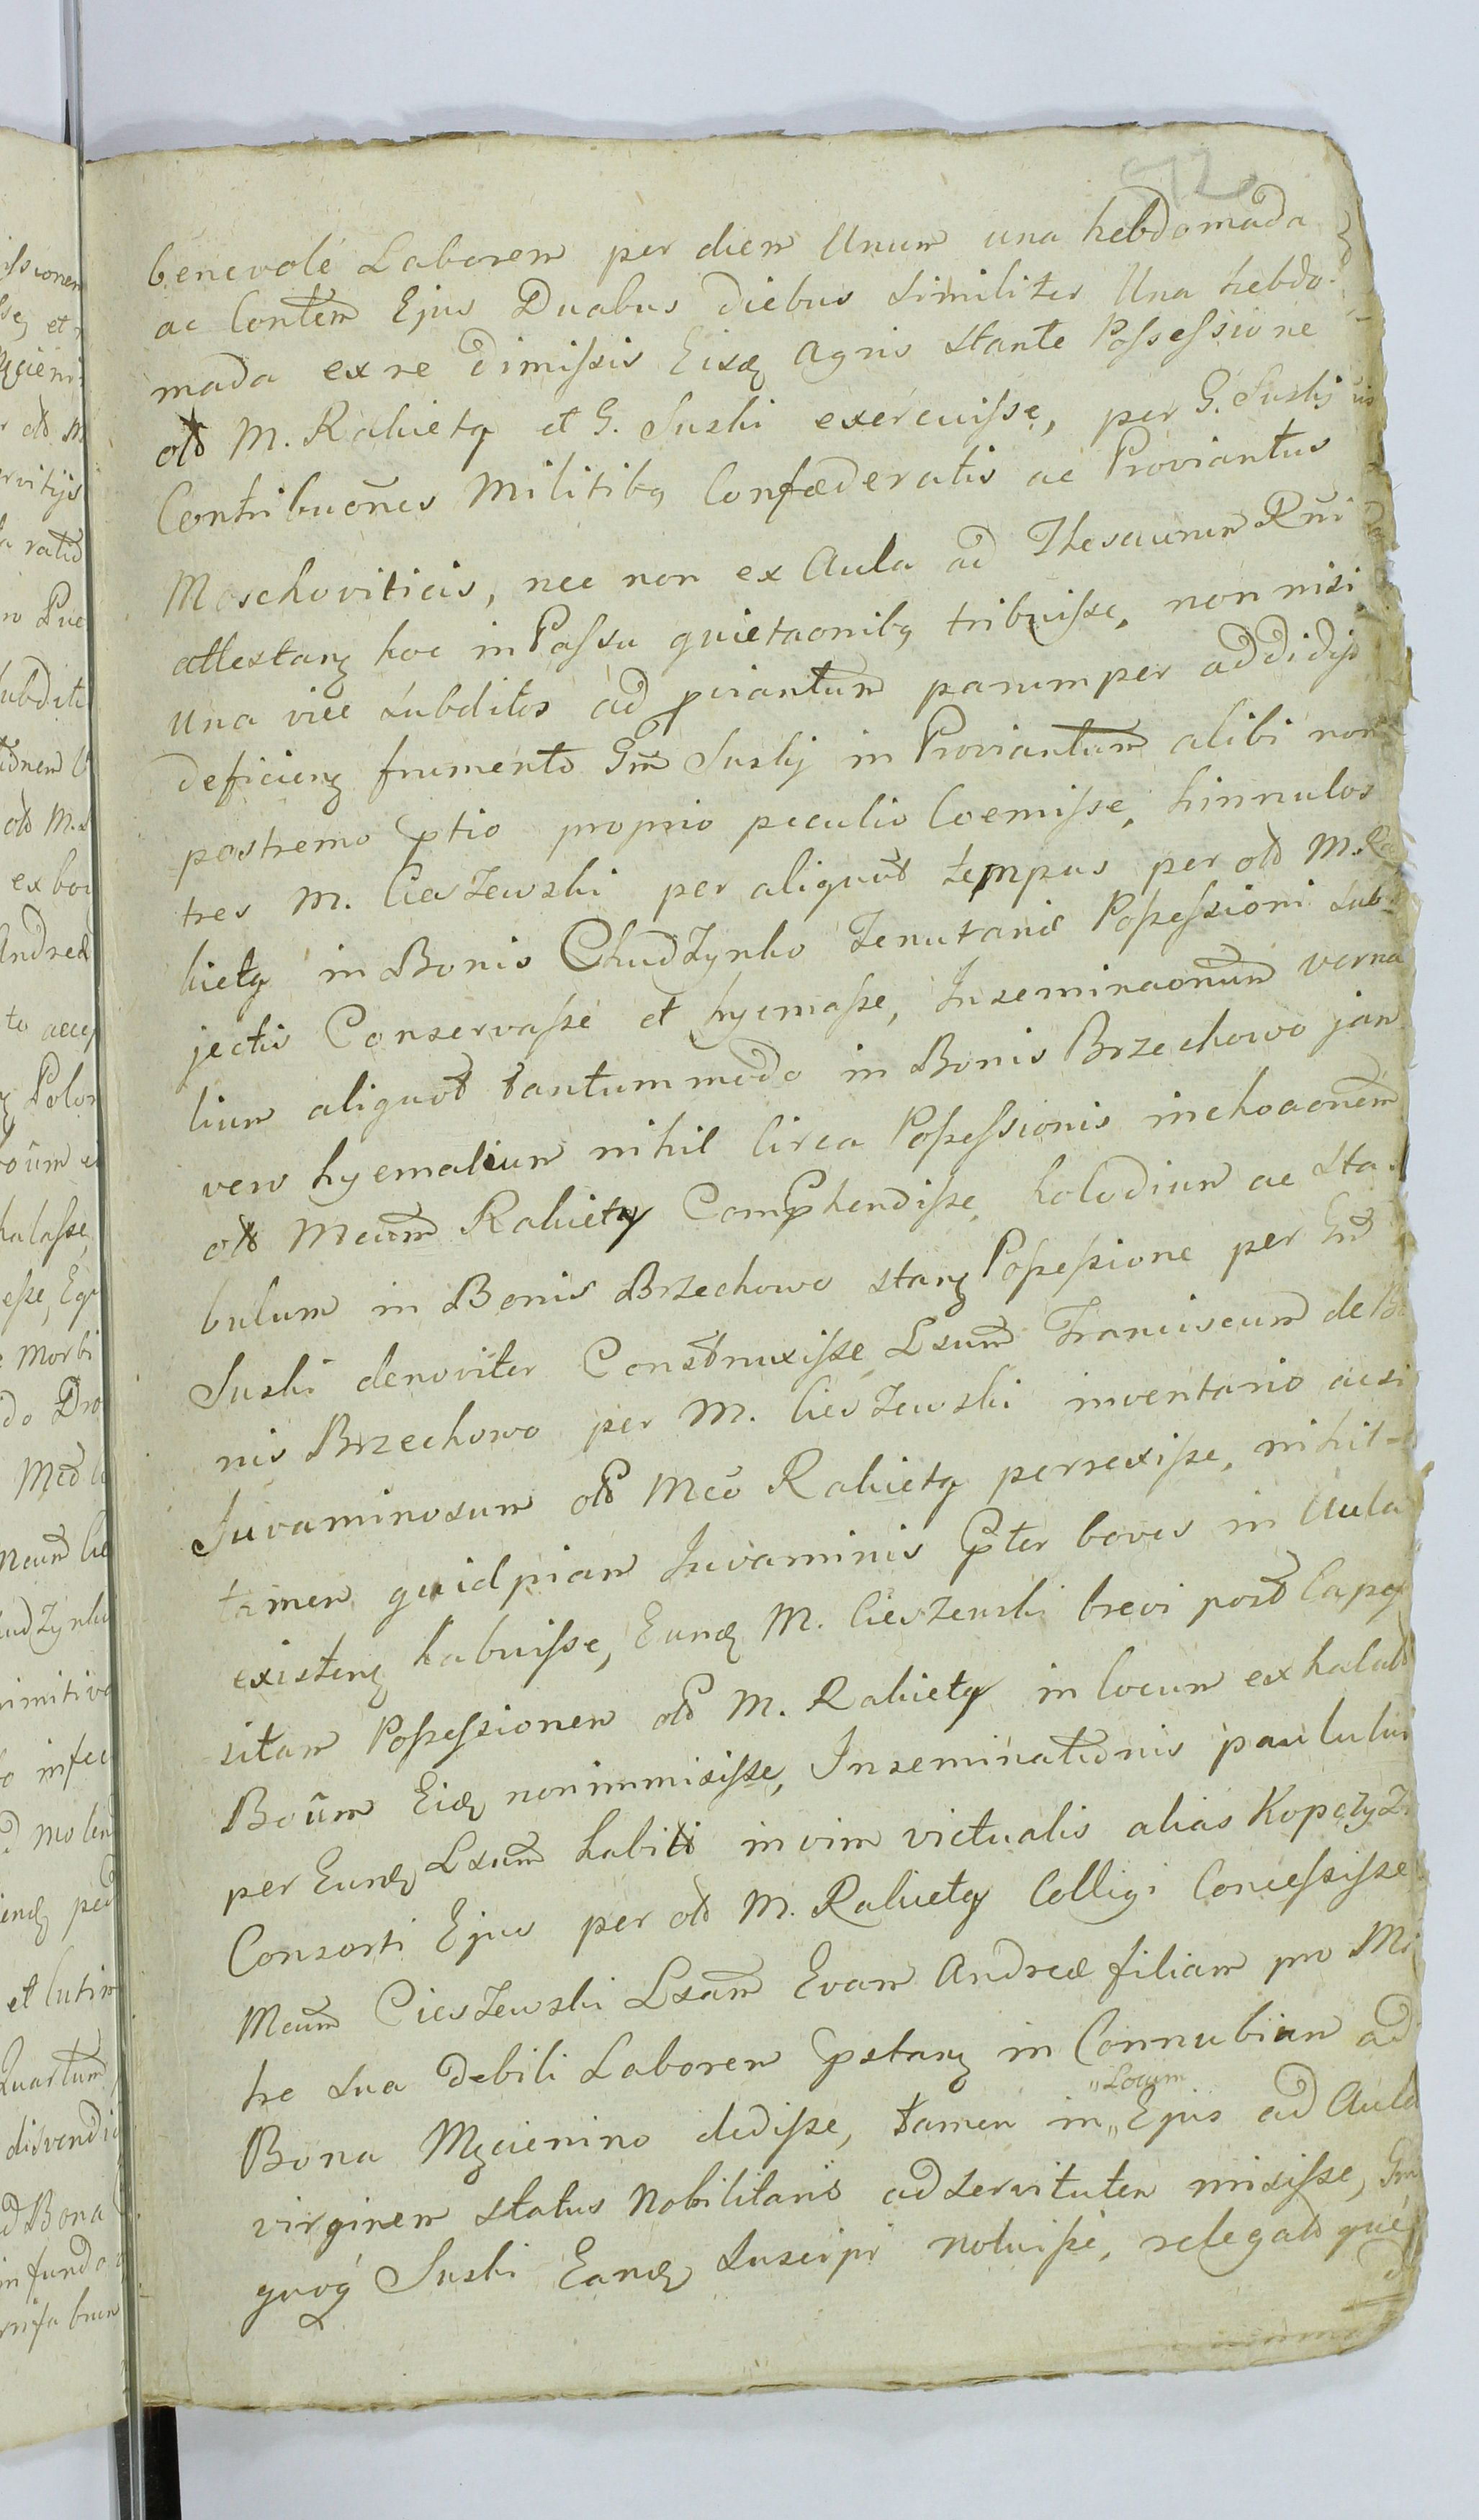 benevolé Laborem per diem Unum una hebdomada
ac Contem̃ Ejus Duabus diebus similiter Una hebdo-
mada ex re dimissis Eisq agris stante Possessione
old M. Rakiety et G. Suski exercuisse, per G. Suskij
Contribuõnes Militibq Confæderatis ac Proviantus
Moschoviticis, nec non ex Aula ad Thesaurum Rñi
attestanz hoc in Passu quietaonibq tribuisse, non nisi
una vice subditos ad pviantum parumper addidiss
deficienz frumento Gm̃ Suskij in Proviantum alibi non
postremo ptio proprio peculio Coemisse, hinnulos
tres M. Cieszewski per aliquot tempus per old M. Ra
kiety in Bonis Chudzynko Tenutariõ Possessioni sub-
jectis Conservasse et hyemasse, Inseminaonum verna
lium aliquot tantummodo in Bonis Brzechowo jam
vero hyemalium nihil Circa Possessionis inchoaonem̃
old Mcum̃ Rakiety Comphendisse, holodium ac sta-
bulum in Bonis Brzechowo stanz Possessione per Gm̃
Suski denoviter Construxisse, Lsum̃ Franciscum de Bo
nis Brzechowo per M. Cieszewski inventario acsi
Juvaminosum old Mco Rakiety perrexisse, nihil
tamen quidpiam Juvaminis Pter boves in Aula
existenz habuisse, Eundq M. Cieszewski brevi post Capes
sitam Possessionem old M. Rakiety in locum exhalat
Boũm Eidq non immisisse, Inseminationis paululum
per Eundq Lsum̃ habiti in vim victualis alias Kopczyzn
Consorti Ejus per old M. Rakiety Colligi Concessisse
Mcum̃ Cieszewski Lsam̃ Evam Andreæ filiam pro Ma
tre sua debili Laborem Pstanz in Connubium ad
Bona Mzcienino dedisse, tamen in „Locum„ Ejus ad Aulã
virginem status Nobilitaris ad servitutem misisse, Gm̃
quoq Suski Eandq suscipi noluisse, relegat que